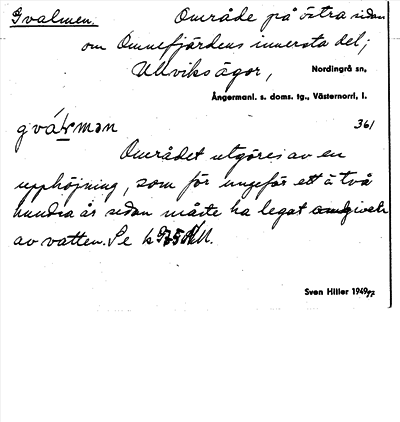 Gvalmen. Område på östra sidan
om Omnefjärdens innersta del;
Ullviks ägor, Nordingrå sn,
Ångermanl. s. doms. tg., Västernorrl. l.
361
Området utgöres av en
upphöjning, som för ungefär ett à två
hundra år sedan måste ha legat omgivet
av vatten. Se k
Sven Hiller 1949